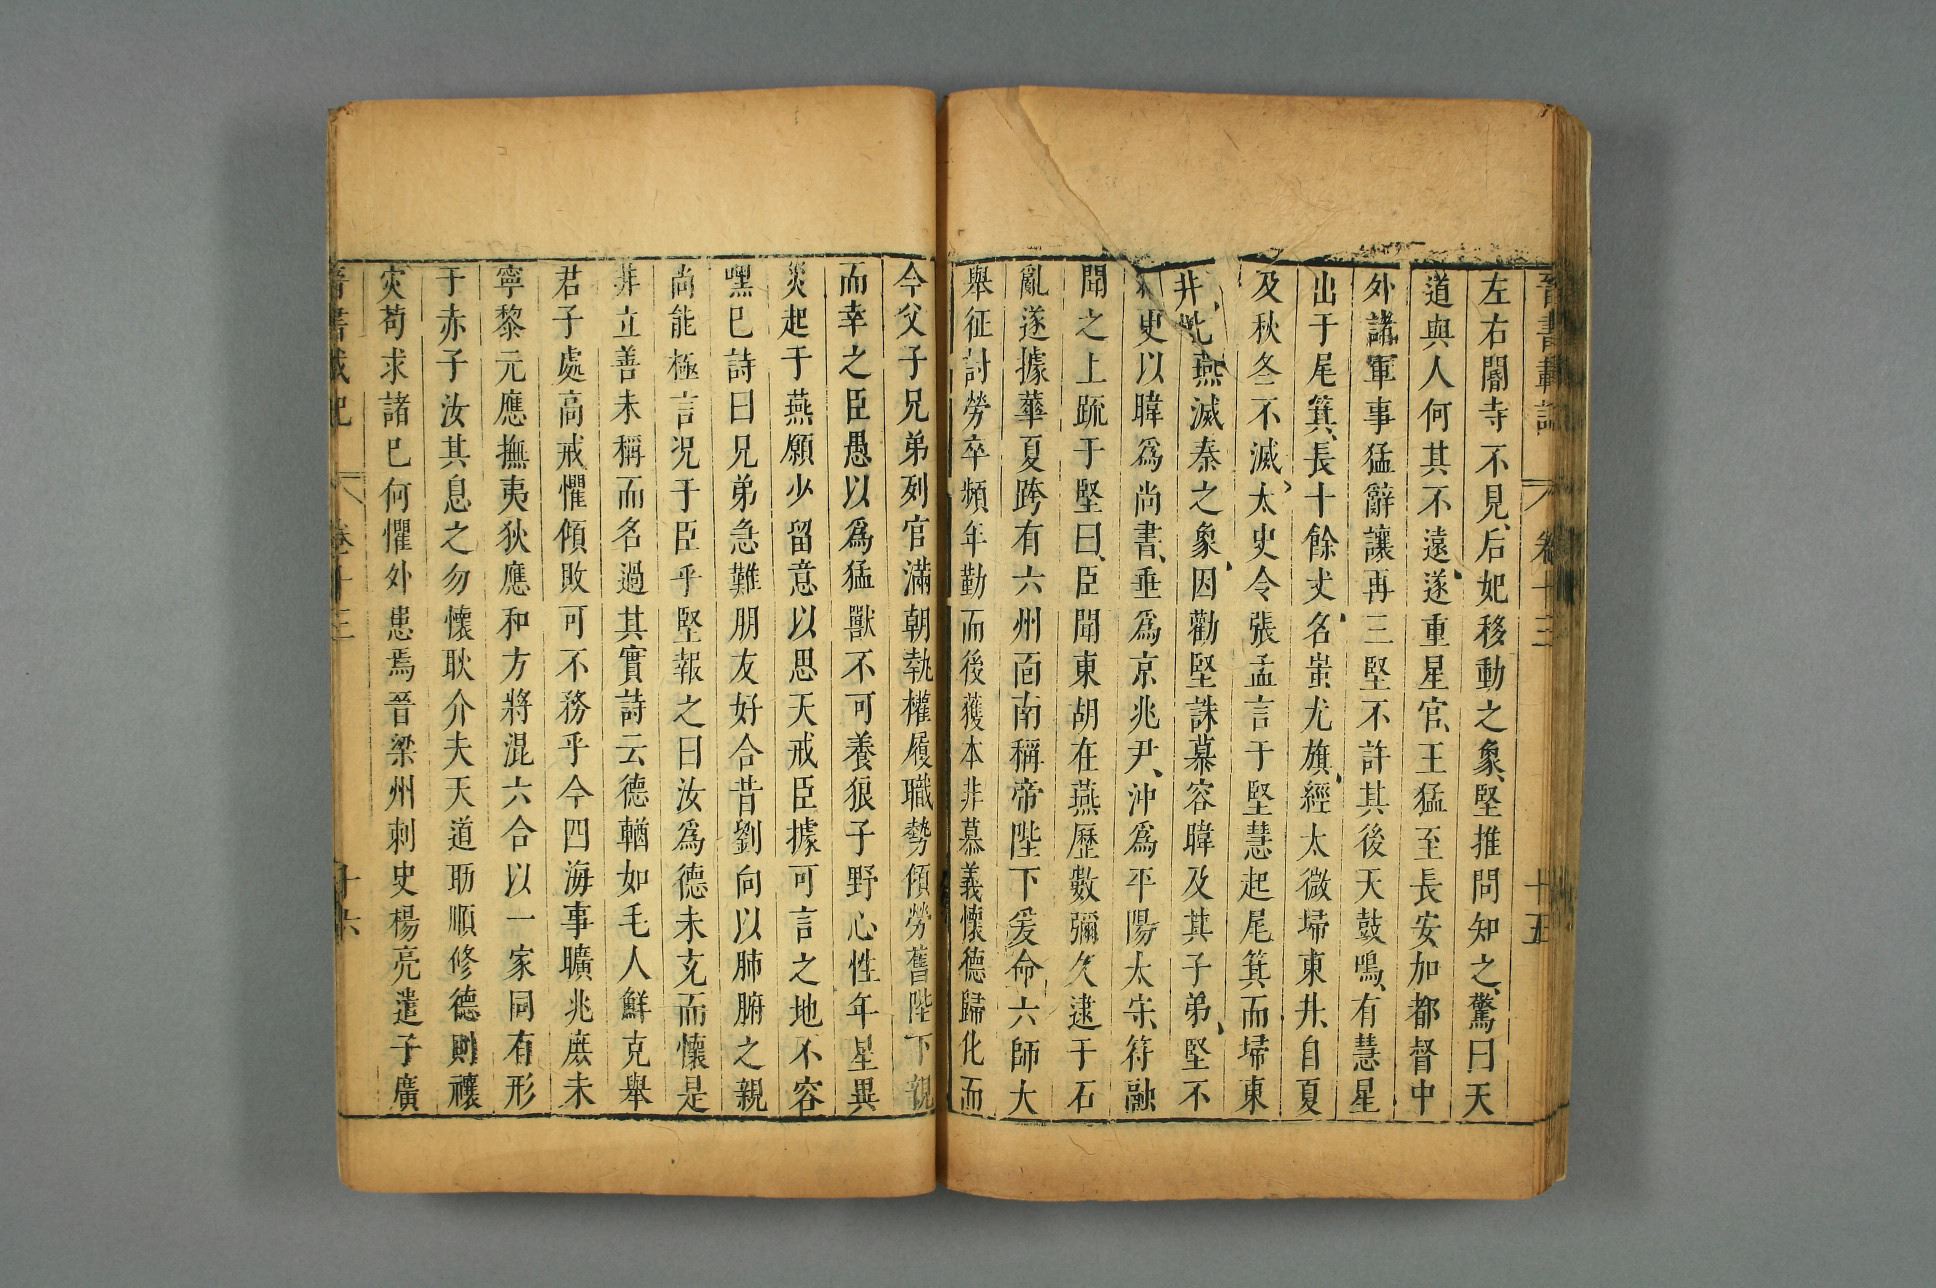 晉書載記 卷十三 十五
左右閽寺不見后妃移動之象堅推問知之驚曰天
道與人何其不遠遂重星官王猛至長安加都督中
外諸軍事猛辭讓再三堅不許其後天鼓鳴有慧星
出于尾箕長十餘丈名蚩尤旗經太微埽東井自夏
及秋冬不滅太史令張孟言于堅慧起尾箕而埽東
井此燕滅秦之象因勸堅誅慕容暐及其子弟堅不
史以暐爲尚書垂爲京兆尹沖爲平陽太守苻融
聞之上疏于堅曰臣聞東胡在燕歷數彌久逮于石
亂遂據華夏跨有六州面南稱帝陛下爰命六師大
舉征討勞卒頻年勤而後獲本非慕義懷德歸化而
今父子兄弟列官滿朝執權履職勢傾勞舊陛下親
而幸之臣愚以爲猛獸不可養狼子野心性年星異
災起于燕願少留意以思天戒臣據可言之地不容
嘿已詩曰兄弟急難朋友好合昔劉向以肺腑之親
尚能極言况于臣乎堅報之曰汝爲德未充而懷是
非立善未稱而名過其實詩云德輶如毛人鮮克舉
君子處高戒懼傾敗可不務乎今四海事曠兆庶未
寧黎元應撫夷狄應和方將混六合以一家同有形
于赤子汝其息之勿懷耿介夫天道助順修德則禳
灾苟求諸已何懼外患焉晉梁州刺史楊亮遣子廣
晉書載記 卷十三 十六